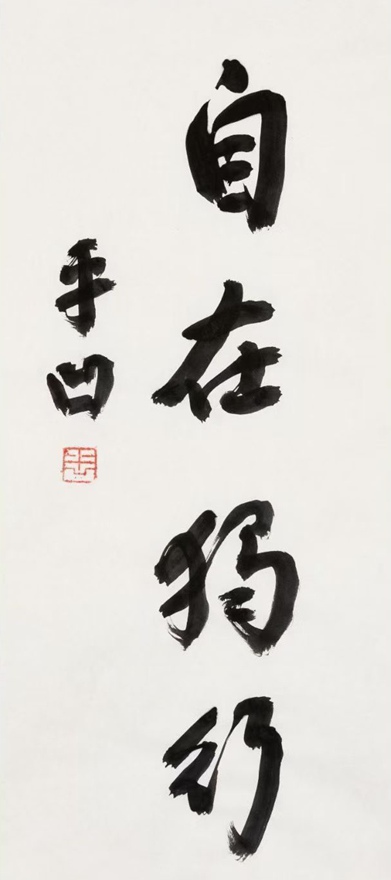 自在獨行
平凹